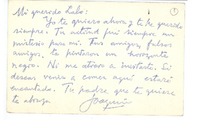 Mi querido Lalo:
Yo te quiero ahora y te he querido
siempre. Tu actitud fué siempre un
misterio para mí. Tus amigos, falsos
amigos, te pintaron un horizonte
negro. Ni me atrevo a insistir. Si
deseas venir a comer aquí estaré
encantado. Tu padre que te quiere
te abraza
Joaquín